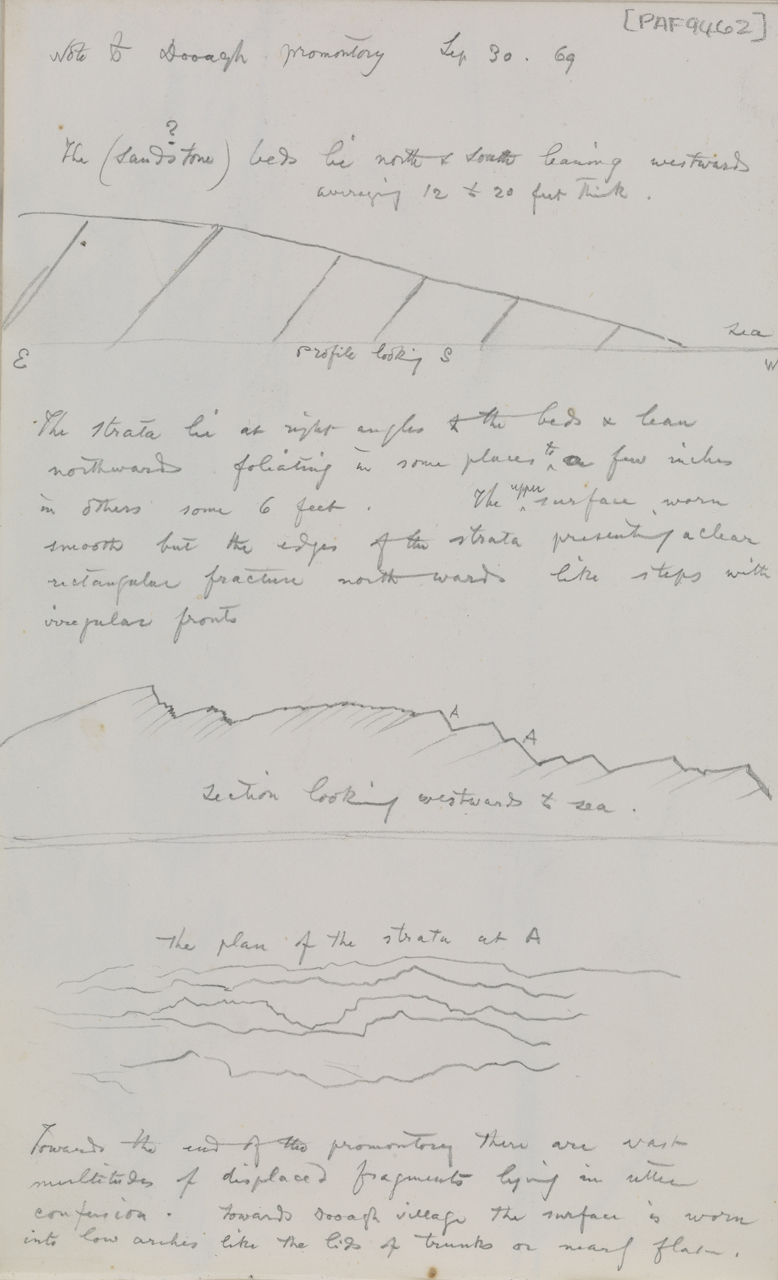 [PAF9462]
Note to Dooagh promontory Sep 30. 69
?
The (sandstone) beds lie north & south leaning westwards
averaging 12 to 20 feet thick.
sea
E profile looking S W
The strata lie at right angles to the beds & lean
northwards foliating in some places to a few inches
in others some 6 feet. The upper surface worn
smooth but the edges of the strata presenting a clear
rectangular fracture northwards like steps with
irregular fronts
A
A
Section looking westwards to sea.
The plan of the strata at A
Towards the end of the promontory there are vast
multitudes of displaced fragments lying in utter
confusion. Towards Dooagh village the surface is worn
into low arches like the lids of trunks or nearly flat.